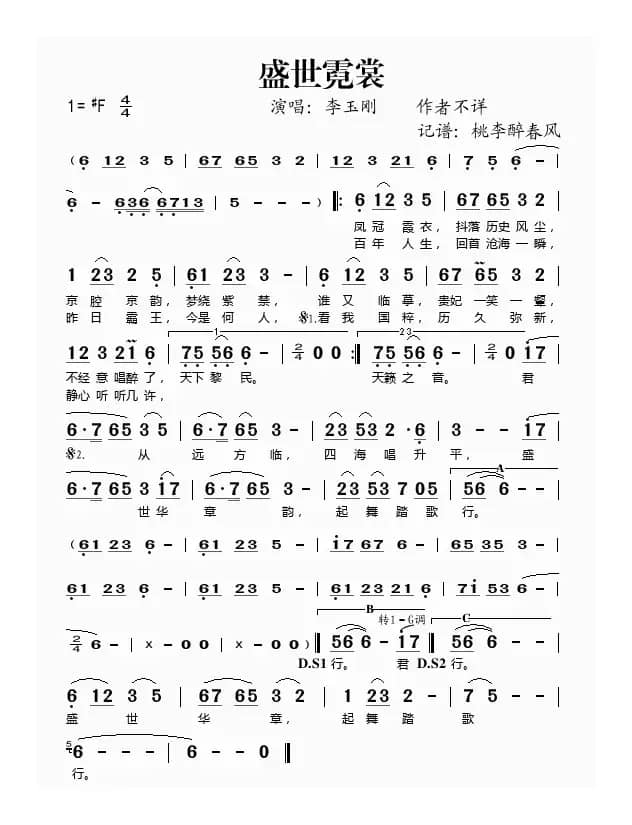 盛世霓裳
1= #F 4/4 演唱：李玉刚 作者不详
记谱：桃李醉春风
( 6 12 3 5 | 67 65 3 5 | 12 3 21 6 | 7 5 6 -
6 - 636 6713 | 5 - - ) ‖: 6 12 3 5 | 67 65 3 2 |
凤冠 霞衣，抖落历史风尘，
百年 人生，回首沧海一瞬，
1 23 2 5 | 61 23 3 - | 6 12 3 5 | 67 65 3 2 |
京腔 京韵，梦绕紫禁， 谁又临摹，贵妃一笑一颦，
昨日 霸王，今是何人，𝄋1.看我国粹，历久弥新，
1 2 3
12 3 21 6 | 75 56 6 - | 2/4 0 0 :‖ 75 56 6 - | 2/4 0 17
不经意唱醉了，天下黎民。 天籁之音。 君
静心听听几许，
6·7 65 3 5 | 6·7 65 3 - | 23 53 2 ·6 | 3 - - 17
𝄋2. 从 远方临，四海唱升平， 盛
A
6·7 65 3 17 | 6·7 65 3 - | 23 53 7 05 | 56 6 - -
世华 章 韵，起舞踏歌行。
( 61 23 6 - | 61 23 5 - | 17 67 6 - | 65 35 3 -
61 23 6 - | 61 23 5 - | 61 23 21 6 | 71 53 6 -
B 转1=G调 C
2/4 6 - | x - 0 0 | x - 0 0 ) ‖ 56 6 - 17 ‖ 56 6 - - |
D.S1 行。 君 D.S2 行。
6 12 3 5 | 67 65 3 5 | 1 23 2 - | 2 - - -
盛 世 华 章， 起舞踏 歌
5 6 - - - | 6 - - 0 ‖
行。